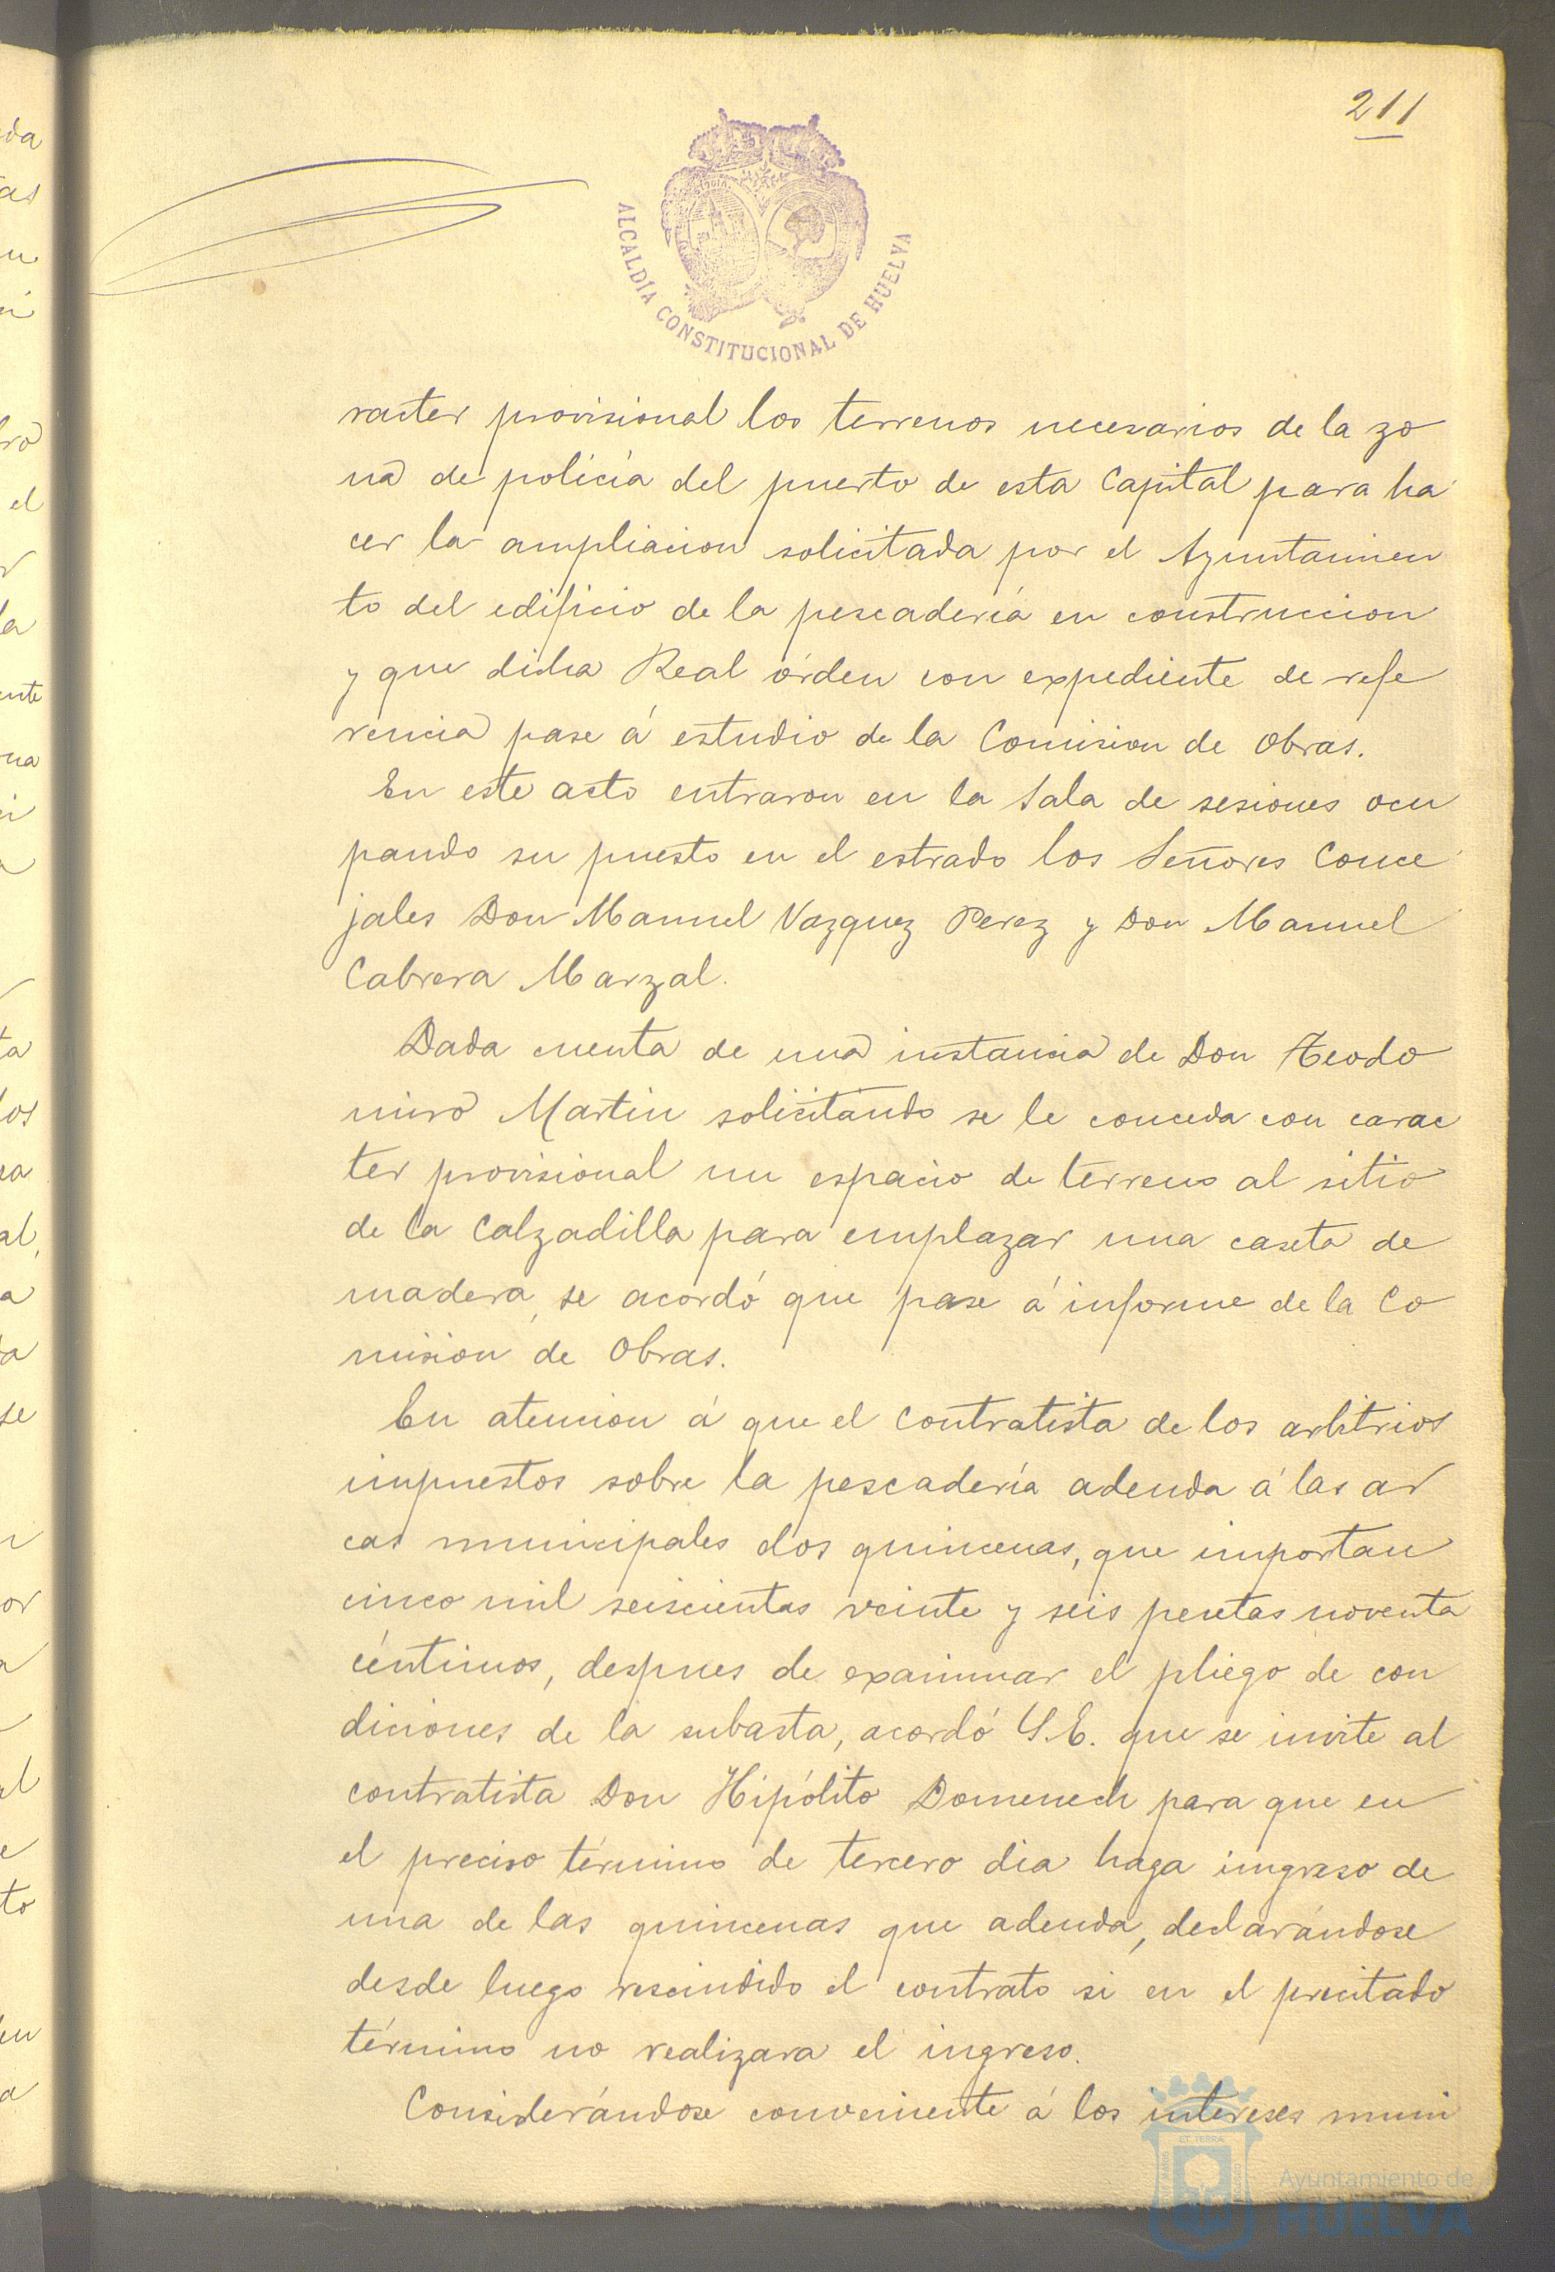 211
ALCALDÍA CONSTITUCIONAL DE HUELVA
racter provisional los terrenos necesarios de la zo
na de policía del puerto de esta Capital para ha
cer la ampliacion solicitada por el Ayuntamien
to del edificio de la pescadería en construccion
y que dicha Real órden con expediente de refe
rencia pase á estudio de la Comision de Obras.
En este acto entraron en la Sala de sesiones ocu
pando su puesto en el estrado los Señores Conce
jales Don Manuel Vazquez Perez y Don Manuel
Cabrera Marzal.
Dada cuenta de una instancia de Don Teodo
miro Martin solicitando se le conceda con carac
ter provisional un espacio de terreno al sitio
de la Calzadilla para emplazar una caseta de
madera, se acordó que pase á informe de la Co
mision de Obras.
En atencion á que el contratista de los arbitrios
impuestos sobre la pescadería adeuda á las ar
cas municipales dos quincenas, que importan
cinco mil seiscientas veinte y seis pesetas noventa
céntimos, despues de examinar el pliego de con
diciones de la subasta, acordó S.E. que se invite al
contratista Don Hipólito Domenech para que en
el preciso término de tercero dia haga ingreso de
una de las quincenas que adeuda, declarándose
desde luego rescindido el contrato si en el precitado
término no realizara el ingreso.
Considerándose conveniente á los intereses muni
Ayuntamiento de
HUELVA